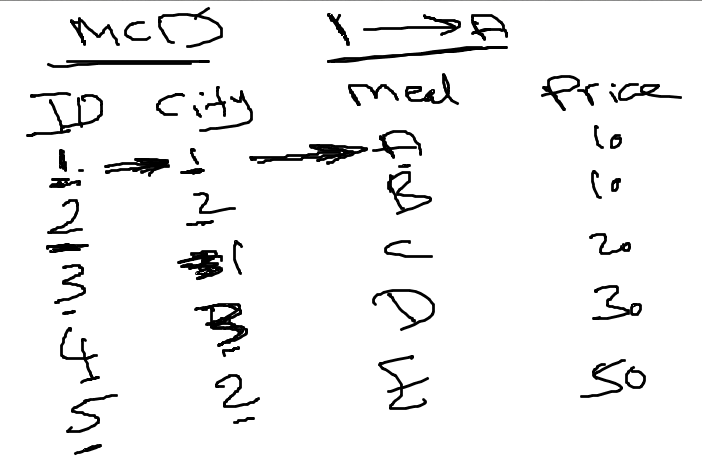 McD 1 → A
ID City Meal Price
1. → 1 → A 10
2 2 B 10
3 1 C 20
4 3 D 30
5 2 E 50